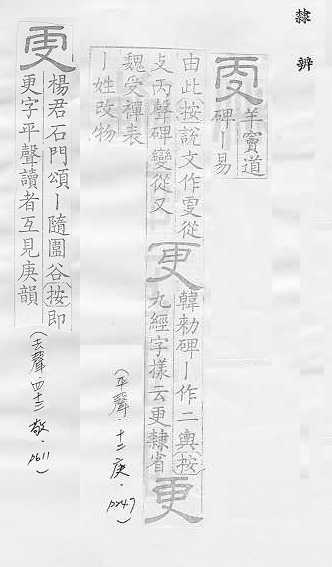 隸辨
㪅
羊竇道
碑丨易
由此按說文作㪅從
攴丙聲碑變從又
更
韓勑碑丨作二輿按
九經字樣云更隸省
更
魏受禪表
丨姓改物
(平聲·十二庚·P247)
更
楊君石門頌丨隨圍谷按即
更字平聲讀者互見庚韻
(去聲·四十三敬·P611)